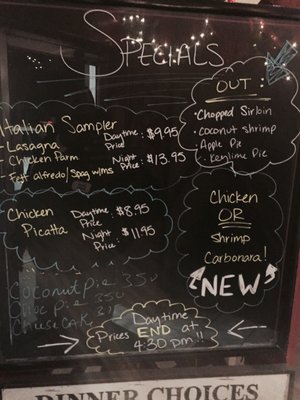 SPECIALS
OUT:
• Chopped Sirloin
• coconut shrimp
Apple Pie
• Keylime Pie
Italian Sampler
- Lasagna
- Chicken Parm
- Fett alfredo/Spag w/ms
Daytime Price: $9.95
Night Price: $13.95
Chicken
Picatta
Daytime Price: $8.95
Night Price: $11.95
Chicken
OR
Shrimp
Carbonara!
NEW
Coconut Pie 350
Choc Pie 350
Cheesecake
Daytime
Prices END at
4:30 pm!!
DINNER CHOICES